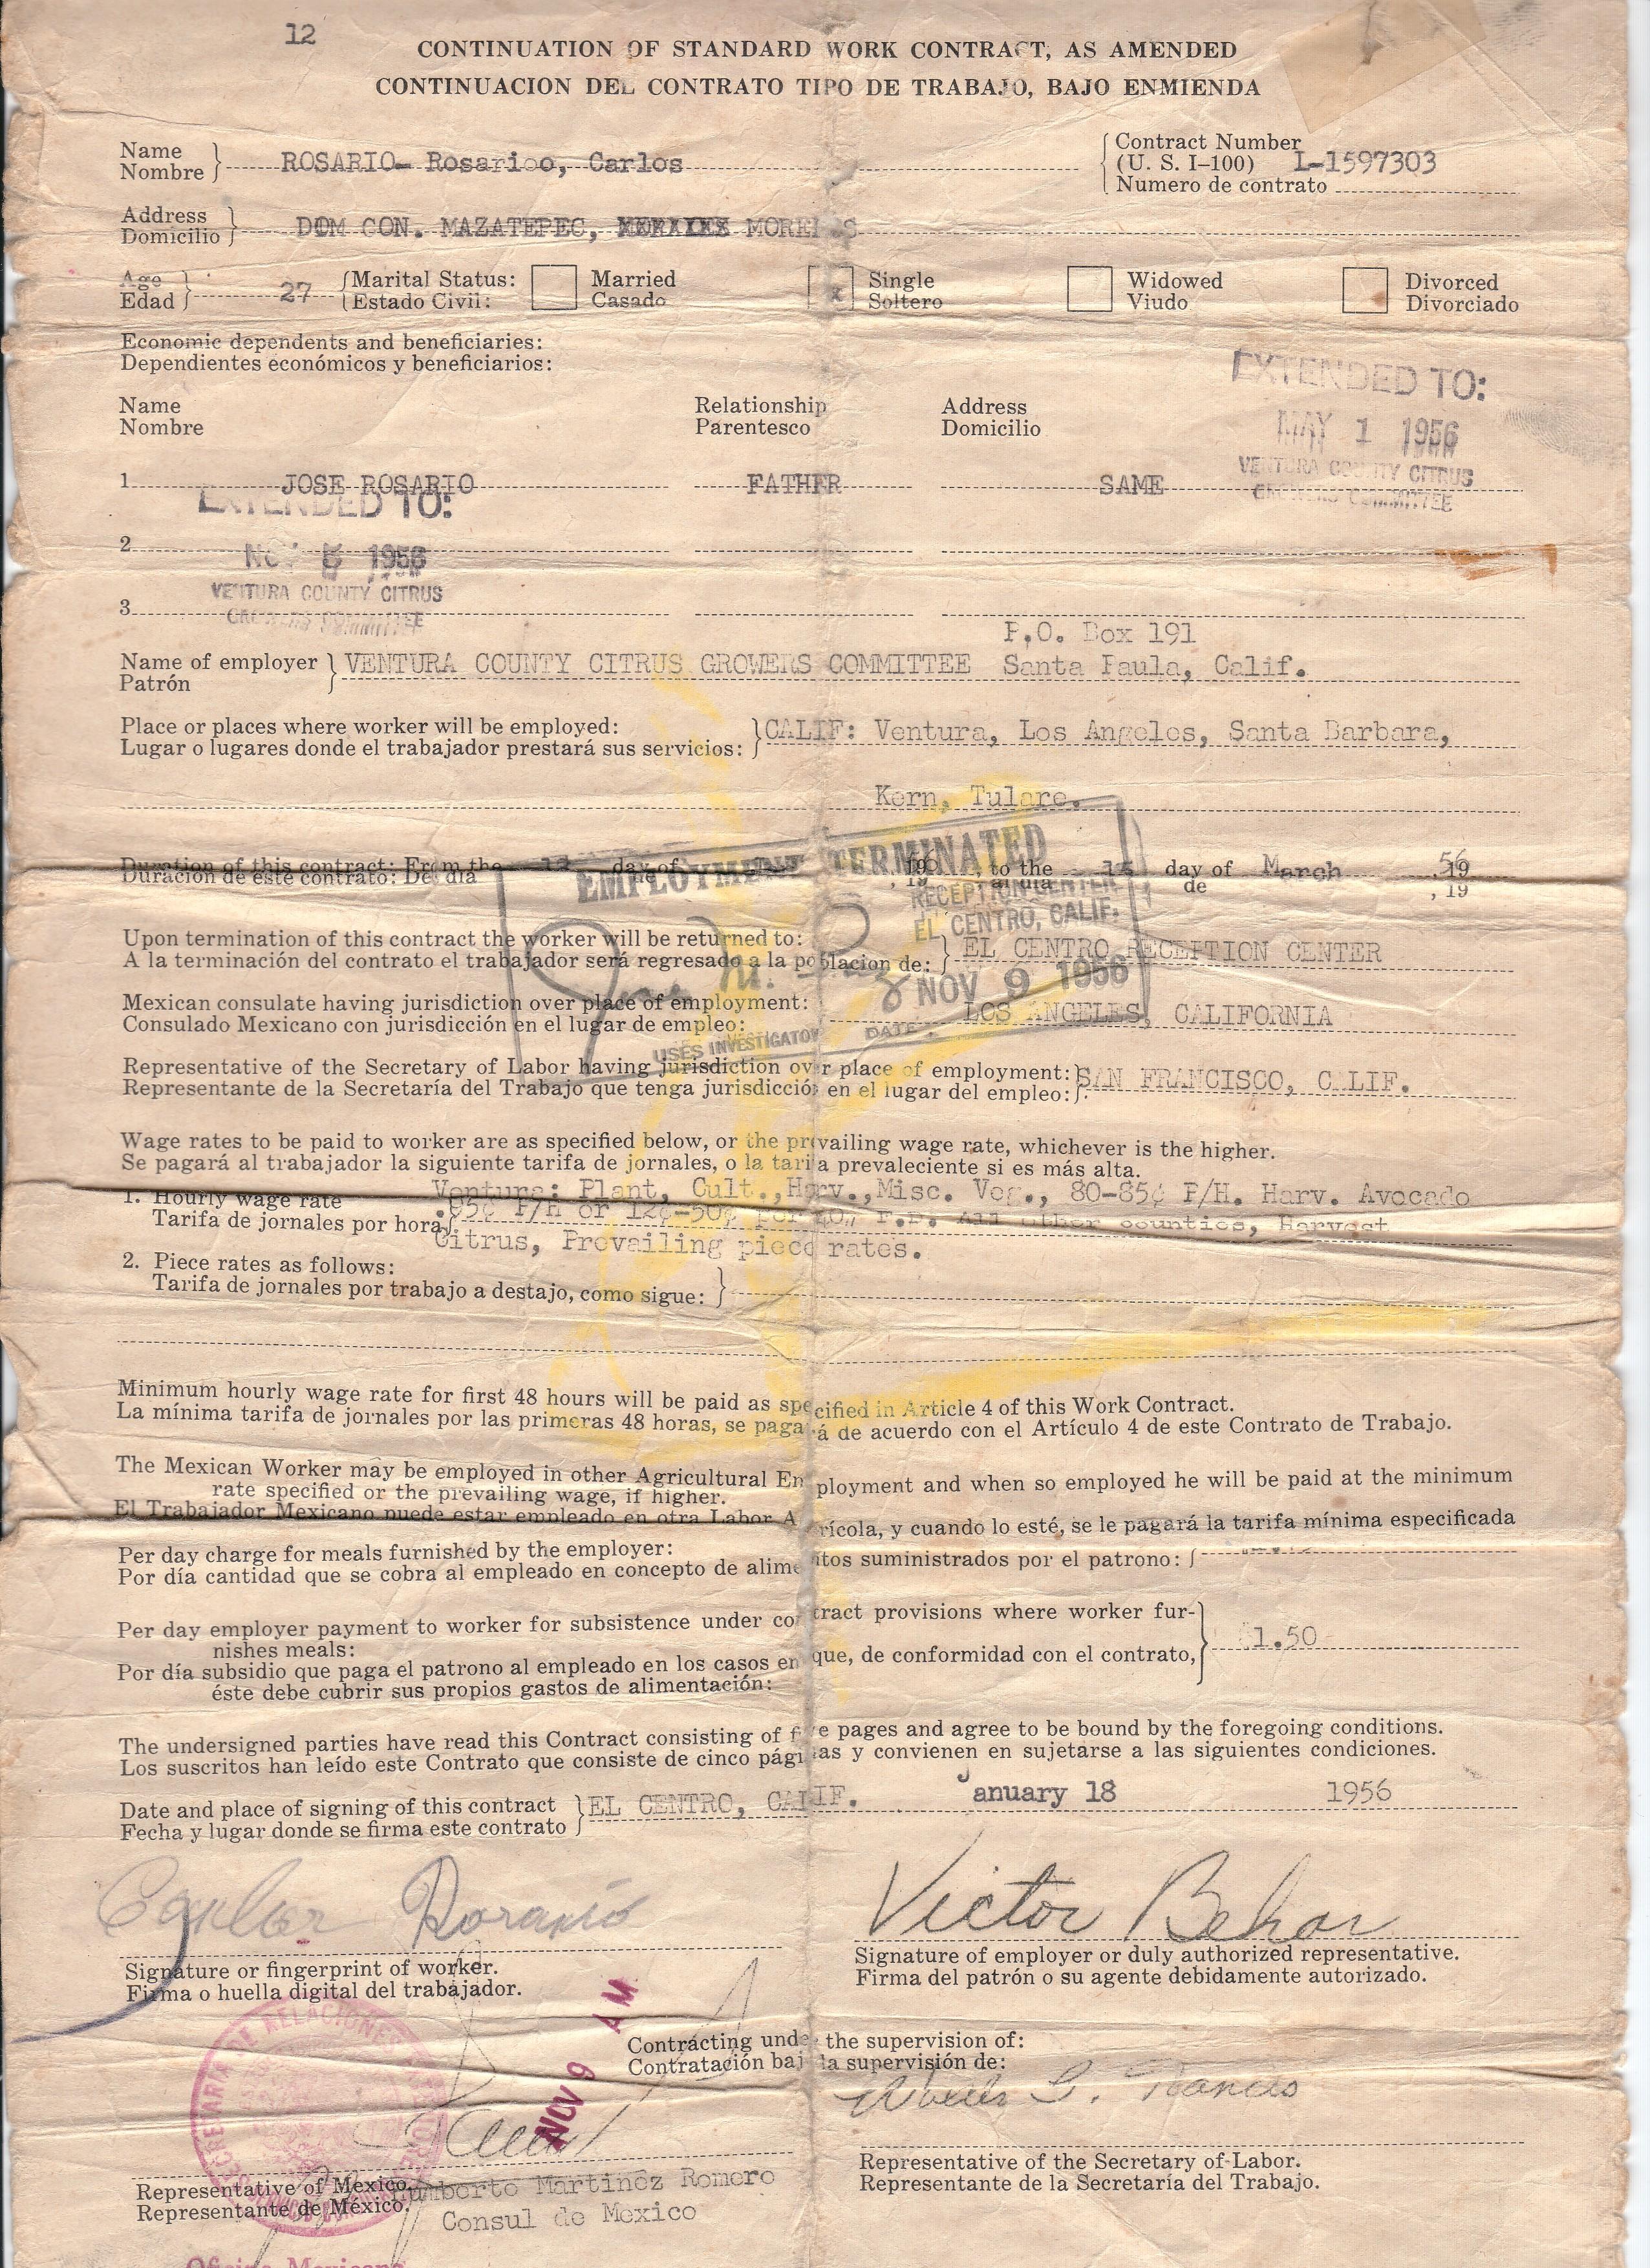 12
CONTINUATION OF STANDARD WORK CONTRACT, AS AMENDED
CONTINUACION DEL CONTRATO TIPO DE TRABAJO, BAJO ENMIENDA
Name
Nombre
ROSARIO- Rosarioo, Carlos
Contract Number
(U. S. I-100) I-1597303
Numero de contrato
Address
Domicilio
DOM CON. MAZATEPEC, MORELOS
Age
Edad
27
Marital Status:
Estado Civil:
Married
Casado
x
Single
Soltero
Widowed
Viudo
Divorced
Divorciado
Economic dependents and beneficiaries:
Dependientes económicos y beneficiarios:
EXTENDED TO:
MAY 1 1956
VENTURA COUNTY CITRUS
GROWERS COMMITTEE
Name
Nombre
Relationship
Parentesco
Address
Domicilio
1 JOSE ROSARIO FATHER SAME
EXTENDED TO:
2
NOV 5 1956
VENTURA COUNTY CITRUS
GROWERS COMMITTEE
3
P.O. Box 191
Name of employer
Patrón
VENTURA COUNTY CITRUS GROWERS COMMITTEE Santa Paula, Calif.
Place or places where worker will be employed:
Lugar o lugares donde el trabajador prestará sus servicios:
CALIF: Ventura, Los Angeles, Santa Barbara,
Kern, Tulare.
Duration of this contract: From the day of 19 , to the 15 day of March 56 19
Duración de este contrato: Del día de , 19 al día de , 19
EMPLOYMENT TERMINATED
RECEPTION CENTER
EL CENTRO, CALIF.
NOV 9 1956
USES INVESTIGATOR DATE
Upon termination of this contract the worker will be returned to:
A la terminación del contrato el trabajador será regresado a la poblacion de:
EL CENTRO RECEPTION CENTER
Mexican consulate having jurisdiction over place of employment:
Consulado Mexicano con jurisdicción en el lugar de empleo:
LOS ANGELES, CALIFORNIA
Representative of the Secretary of Labor having jurisdiction over place of employment:
Representante de la Secretaría del Trabajo que tenga jurisdicción en el lugar del empleo:
SAN FRANCISCO, CALIF.
Wage rates to be paid to worker are as specified below, or the prevailing wage rate, whichever is the higher.
Se pagará al trabajador la siguiente tarifa de jornales, o la tarifa prevaleciente si es más alta.
1. Hourly wage rate
Tarifa de jornales por hora
Ventura: Plant, Cult., Harv., Misc. Veg., 80-85¢ P/H. Harv. Avocado
.85¢ P/H or 12¢-50¢ per All other counties, Harvest
Citrus, Prevailing piece rates.
2. Piece rates as follows:
Tarifa de jornales por trabajo a destajo, como sigue:
Minimum hourly wage rate for first 48 hours will be paid as specified in Article 4 of this Work Contract.
La mínima tarifa de jornales por las primeras 48 horas, se pagará de acuerdo con el Artículo 4 de este Contrato de Trabajo.
The Mexican Worker may be employed in other Agricultural Employment and when so employed he will be paid at the minimum
rate specified or the prevailing wage, if higher.
El Trabajador Mexicano puede estar empleado en otra Labor Agrícola, y cuando lo esté, se le pagará la tarifa mínima especificada
Per day charge for meals furnished by the employer:
Por día cantidad que se cobra al empleado en concepto de alimentos suministrados por el patrono:
Per day employer payment to worker for subsistence under contract provisions where worker fur-
nishes meals:
Por día subsidio que paga el patrono al empleado en los casos en que, de conformidad con el contrato,
éste debe cubrir sus propios gastos de alimentación:
1.50
The undersigned parties have read this Contract consisting of five pages and agree to be bound by the foregoing conditions.
Los suscritos han leído este Contrato que consiste de cinco páginas y convienen en sujetarse a las siguientes condiciones.
Date and place of signing of this contract
Fecha y lugar donde se firma este contrato
EL CENTRO, CALIF. January 18 1956
Carlos Rosario
Victor Behar
Signature or fingerprint of worker.
Firma o huella digital del trabajador.
Signature of employer or duly authorized representative.
Firma del patrón o su agente debidamente autorizado.
NOV 9 AM
Contracting under the supervision of:
Contratación bajo la supervisión de:
SECRETARIA DE RELACIONES EXTERIORES
Representative of Mexico.
Representante de México.
Humberto Martinez Romero
Consul de Mexico
Representative of the Secretary of Labor.
Representante de la Secretaría del Trabajo.
Oficina Mexicana